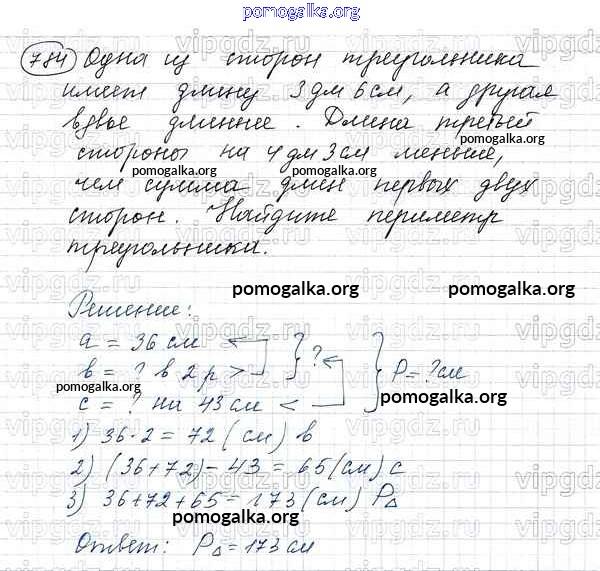 pomogalka.org
784 Одна из сторон треугольника
имеет длину 3 дм 6 см, а другая
вдвое длиннее. Длина третьей
pomogalka.org
стороны на 4 дм 3 см меньше,
pomogalka.org pomogalka.org
чем сумма длин первых двух
сторон. Найдите периметр
треугольника.
pomogalka.org pomogalka.org
Решение:
a = 36 см
b = ? в 2 р > } ? } P = ? см
pomogalka.org pomogalka.org
c = ? на 43 см <
1) 36·2 = 72 (см) b
2) (36+72) - 43 = 65 (см) c
3) 36+72+65 = 173 (см) P△
pomogalka.org
Ответ: P△ = 173 см